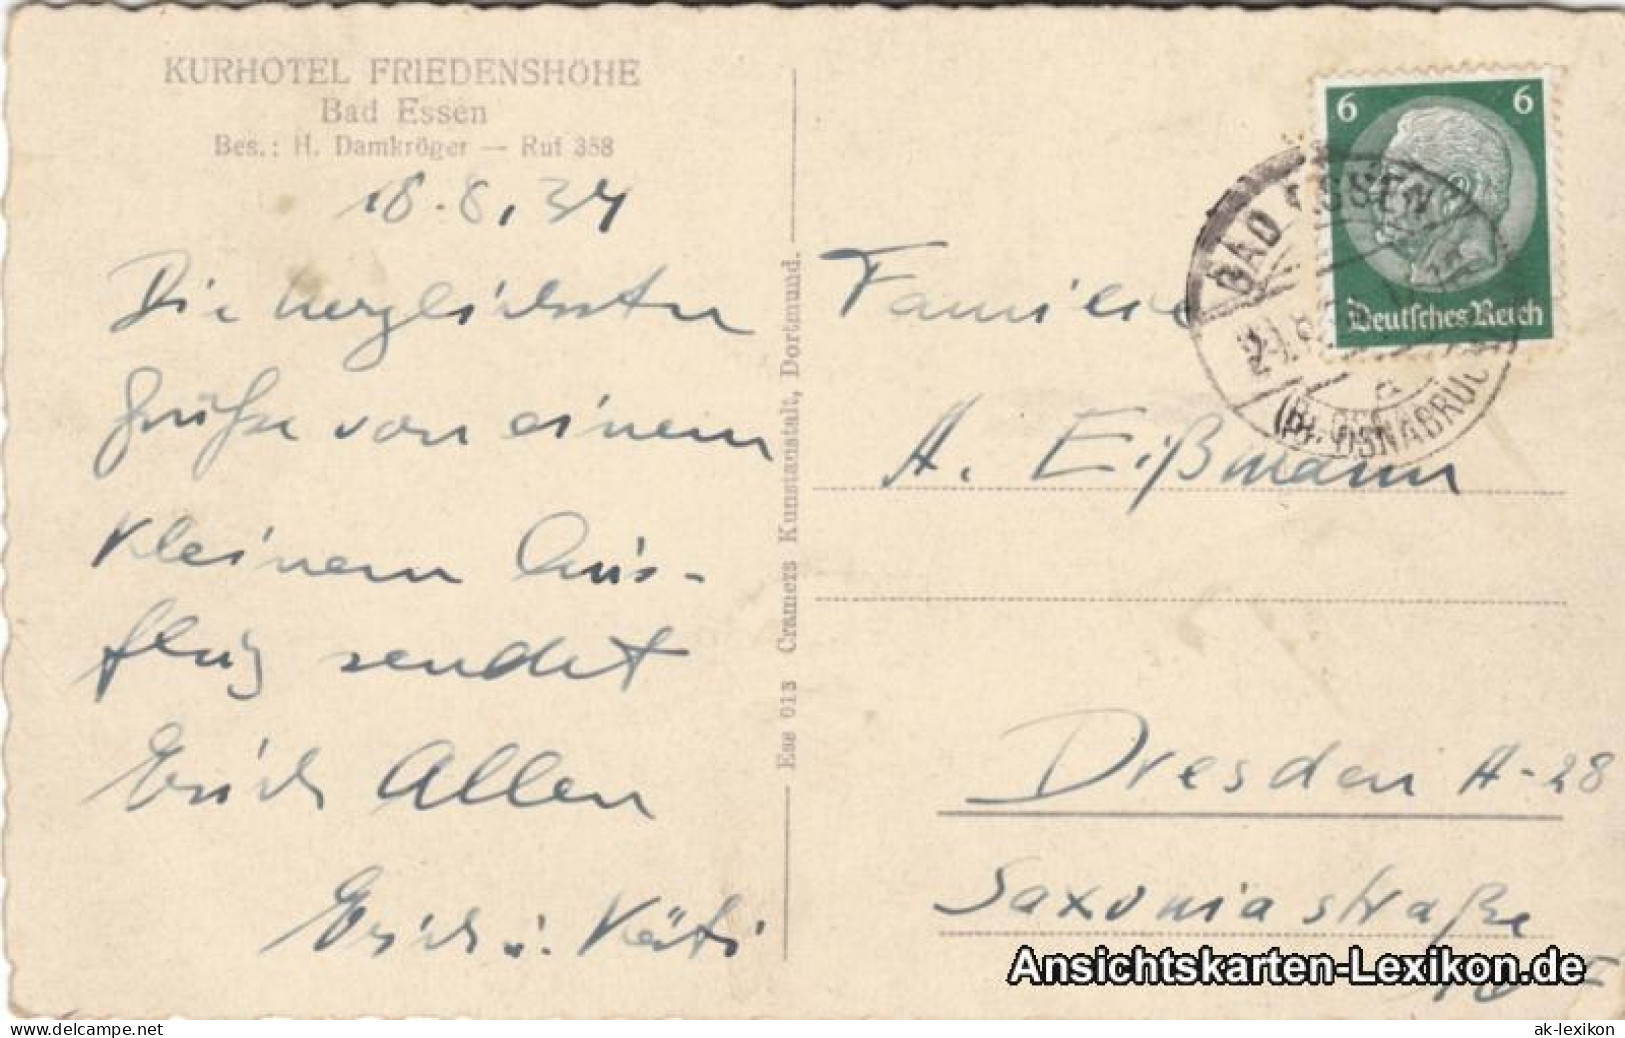 KURHOTEL FRIEDENSHÖHE
Bad Essen
Bes.: H. Damkröger — Ruf 358
18.8.34
Die herzlichsten
Grüße von einem
kleinem Aus-
flug sendet
Erich Allen
Erich u. Käti
Ess 013 Cramers Kunstanstalt, Dortmund.
6 6
Deutsches Reich
BAD ESSEN
(Bz. OSNABRÜCK
Familie
A. Eißmann
Dresden A-28
Saxoniastraße
Ansichtskarten-Lexikon.de
www.delcampe.net
ak-lexikon